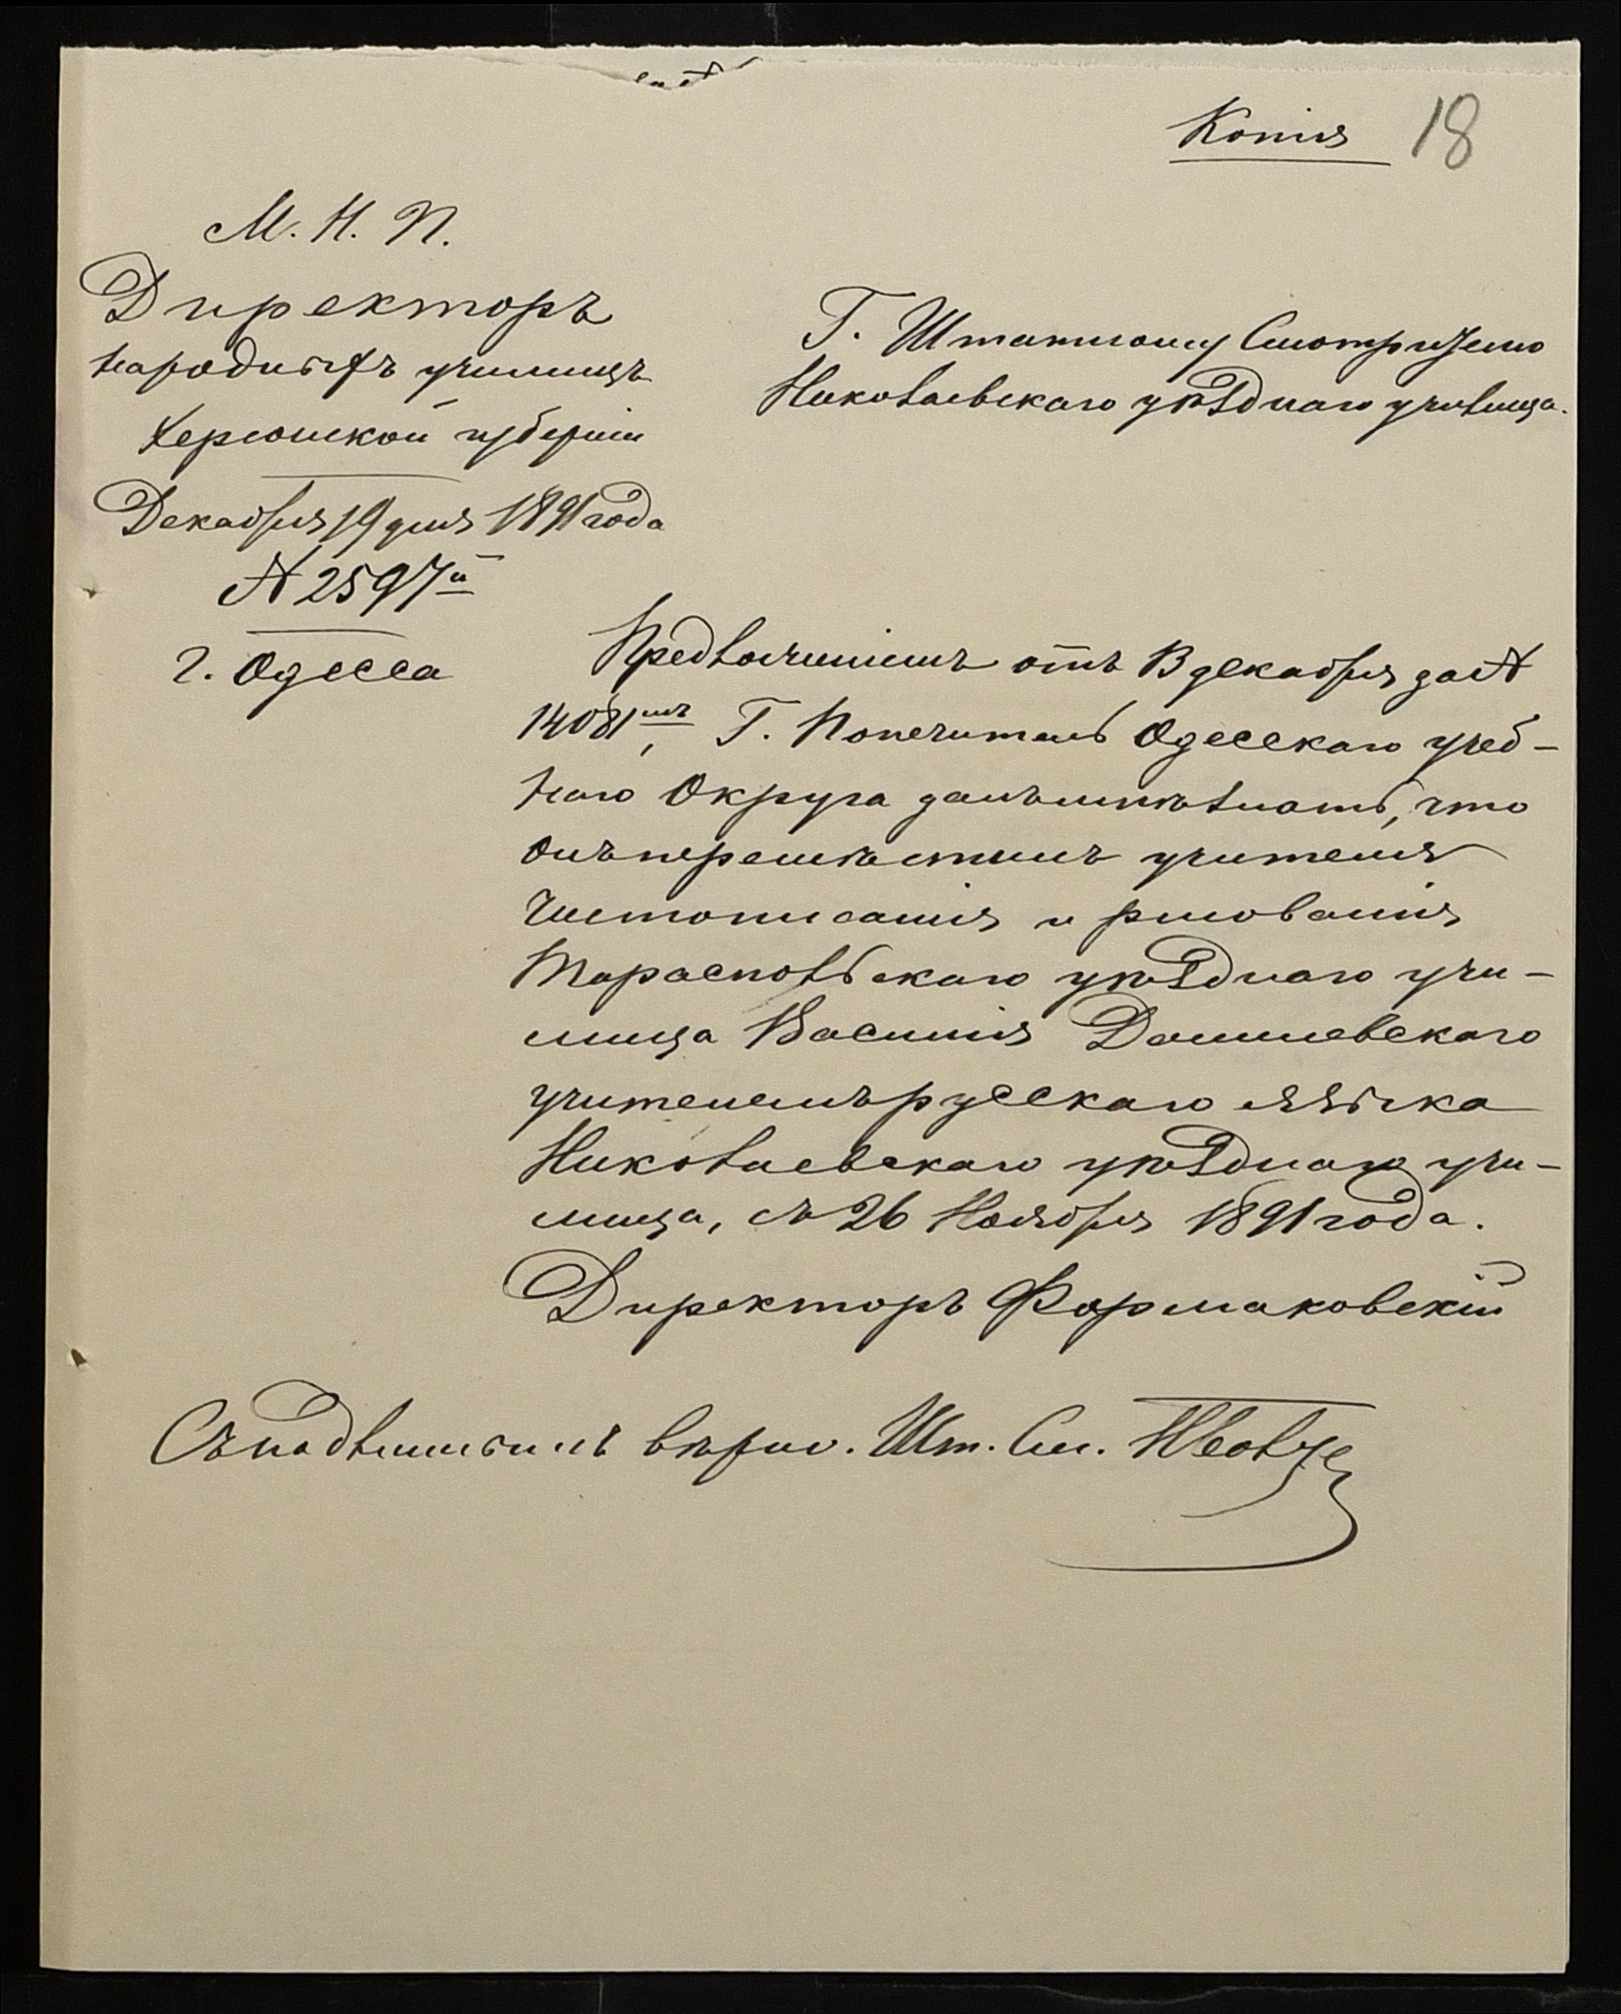 Копія 18
М. Н. П.
Директоръ
народныхъ училищъ
Херсонской губерніи
Декабря 19 дня 1891 года
№ 2597й
г. Одесса
Г. Штатному Смотрителю
Николаевскаго уѣзднаго училища.
Предложеніемъ отъ 13 декабря за №
14081мъ, Г. Попечитель Одесскаго учеб-
наго Округа далъ мнѣ знать, что
онъ перемѣстилъ учителя
Чистописанія и рисованія
Тираспольскаго уѣзднаго учи-
лища Василія Данилевскаго
учителемъ русскаго языка
Николаевскаго уѣзднаго учи-
лища, съ 26 Ноября 1891 года.
Директоръ Фармаковскій
Съ подлиннымъ вѣрно. Шт. См.